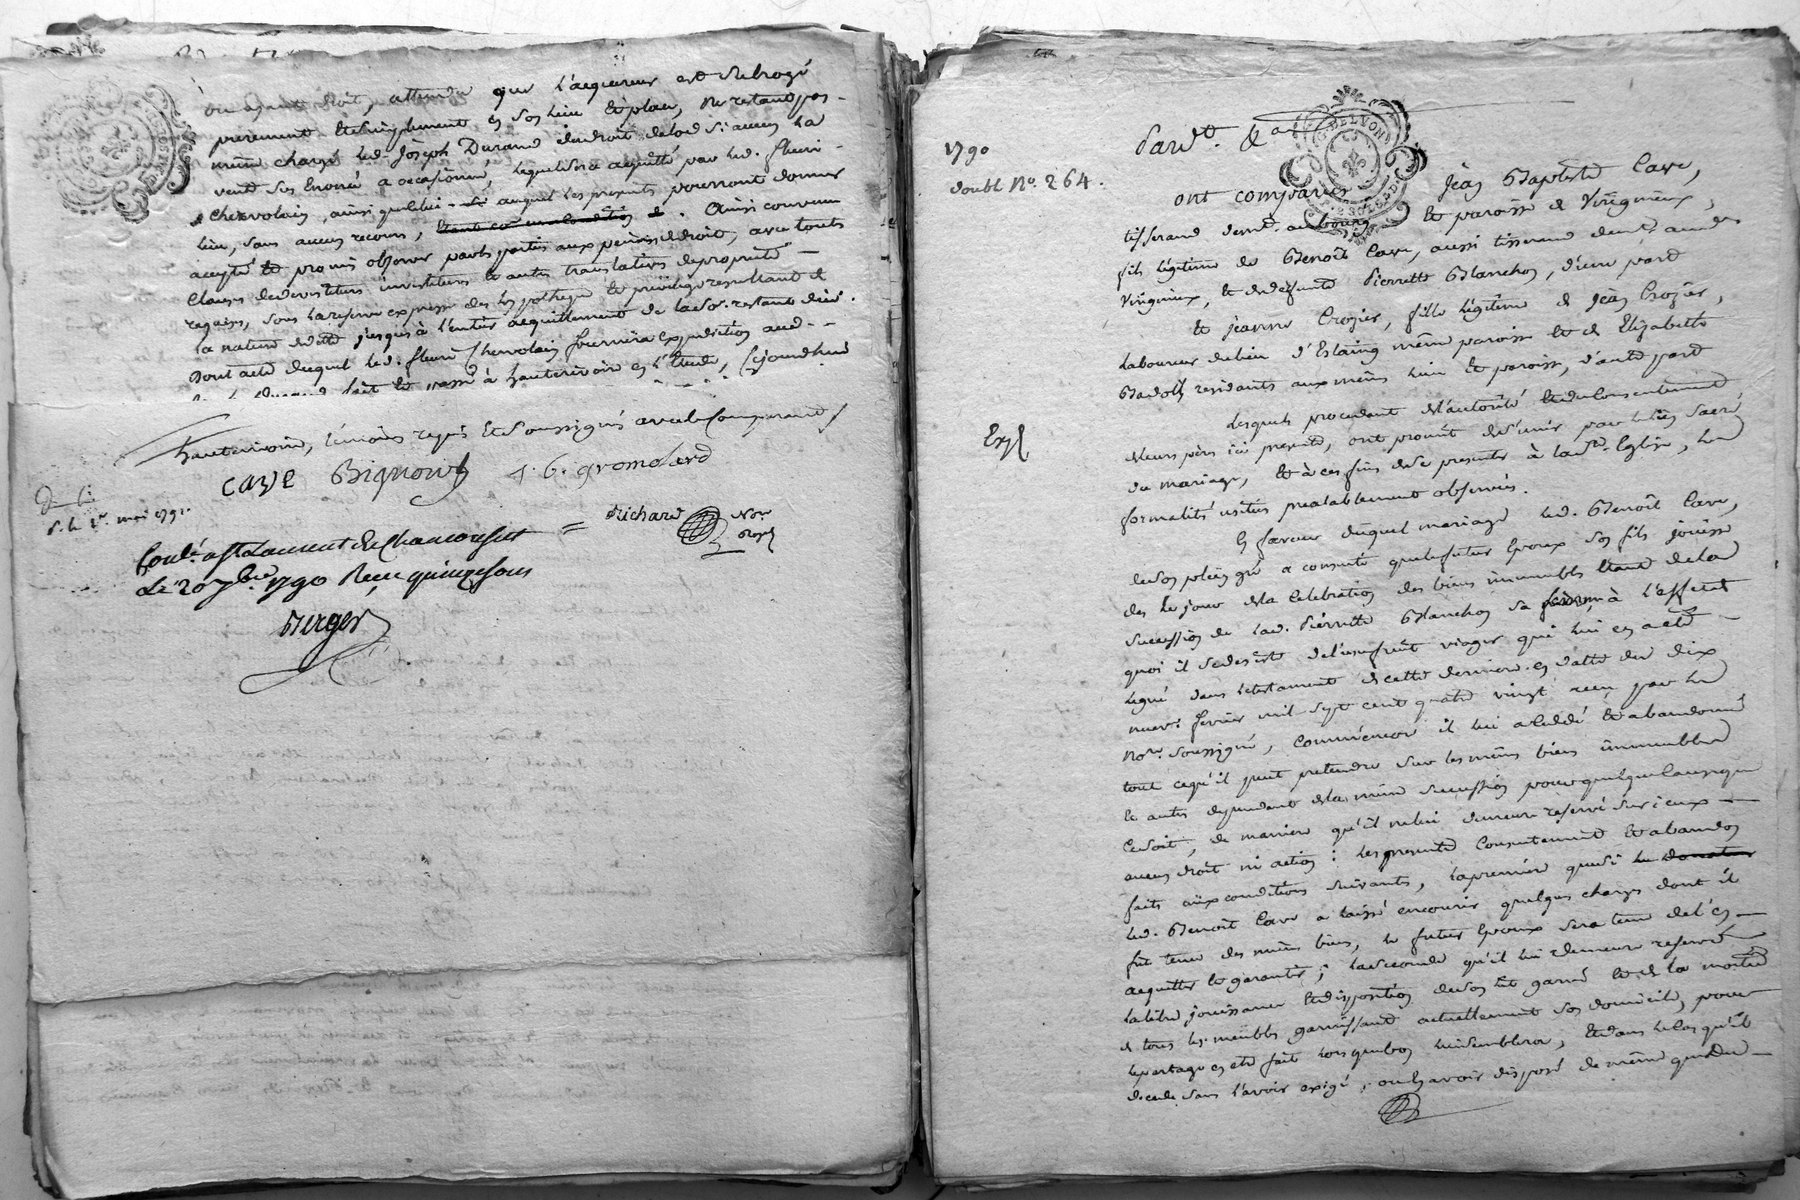 ou ayant droit, attendu que l'acquereur est subrogé
purement et simplement en son lieu et place, ne restant pas -
même chargé led. Joseph Durand du droit de lod si aucun la
vente s'en trouve a occasionné, lequel sera acquitté par led. fleuri -
Chervolain, ainsi que auquel les présents pourront donner
lieu, sans aucun recours, . Ainsi convenu
accepté et promis observer par les parties aux peines de droit, avec toutes
clauses de devestiture investiture et autres translatives de propriété -
requises, sous la reserve expresse des hypotheque et privilege resultant de
la nature de dette jusques à l'entier acquittement de lad. so. restante due.
Dont acte duquel led. fleuri Chervolain fournira expedition aud. - -
Durand fait et passé à hauterivoire en l'Etude, cejourdhui
hauterivoire, témoins requis et soussignés avec le Comparant
cave Bignon J. b. gromolard
d. le 1er mai 1791.
Richard Nore Royal
Conlé a St Laurent de Chamousset
Le 20 7bre 1790 Reçu quinze sous
Berger
1790
doubl No. 264.
Pardt. &a
G. DE LYON
ont comparus Jean Baptiste Cave,
tisserand demt. au bourg et paroisse de Virigneux,
fils légitime de Benoît Cave, aussi tisserand demt. aud.
Virigneux, et de defunte Pierrette Blanchon, d'une part
Et jeanne Crozier, fille légitime de Jean Crozier,
laboureur du lieu d'Estaing même paroisse et de Elizabeth
Badoil residants aux mêmes lieu et paroisse, d'autre part
Lesquels procedant de l'autorité et du consentement
de leurs pères ici presents, ont promis de s'unir par le lien sacré
du mariage, et à ces fins de se presenter à la ste. Eglise, les
formalités usitées prealablement observées.
Exp
En faveur duquel mariage led. Benoît Cave,
de son plein gré a consenti que le futur Epoux son fils jouisse
des le jour de la Celebration des biens immeubles étant de la
succession de lad. Pierrette Blanchon sa femme à l'effet de
quoi il se desiste de l'usufruit viager qui lui en a été -
legué dans le testament de cette derniere en datte du dix
neuf fevrier mil sept cent quatre vingt reçu par le
nore. soussigné, comm'encore il lui a cédé et abandonné
tout ce qu'il peut pretendre sur les mêmes biens immeubles
et autres dependant de la même succession pour quelque cause que
ce soit, de maniere qu'il ne lui demeure reservé sur iceux -
aucun droit ni action : les presents consentement et abandon
faits aux conditions suivantes, la premiere que si le donateur
led. Benoît Cave a laissé encourir quelques charges dont il
fut tenu des mêmes biens, le futur Epoux sera tenu de l'en -
acquitter et garantir ; la seconde qu'il lui demeure reservé
la libre jouissance et disposition de son lit garni et de la moitié
de tous les meubles garnissant actuellement son domicile, pour
le partage en etre fait lorsque bon lui semblera, et dans le cas qu'il
decede sans l'avoir exigé, ou l'avoir disposé de même que du -